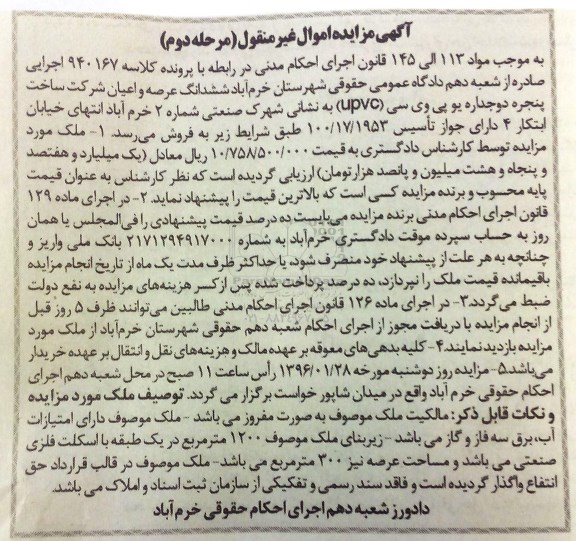 آگهی مزایده اموال غیر منقول (مرحله دوم)
به موجب مواد ۱۱۳ الی ۱۴۵ قانون اجرای احکام مدنی در رابطه با پرونده کلاسه ۹۴۰۱۶۷ اجرایی
صادره از شعبه دهم دادگاه عمومی حقوقی شهرستان خرم آباد ششدانگ عرصه و اعیان شرکت ساخت
پنجره دوجداره یو پی وی سی (upvc) به نشانی شهرک صنعتی شماره ۲ خرم آباد انتهای خیابان
ابتکار ۴ دارای جواز تأسیس ۱۰۰/۱۷/۱۹۵۳ طبق شرایط زیر به فروش می‌رسد. ۱- ملک مورد
مزایده توسط کارشناس دادگستری به قیمت ۱۰/۷۵۸/۵۰۰/۰۰۰ ریال معادل (یک میلیارد و هفتصد
و پنجاه و هشت میلیون و پانصد هزار تومان) ارزیابی گردیده است که نظر کارشناس به عنوان قیمت
پایه محسوب و برنده مزایده کسی است که بالاترین قیمت را پیشنهاد نماید. ۲- در اجرای ماده ۱۲۹
قانون اجرای احکام مدنی برنده مزایده می‌بایست ده درصد قیمت پیشنهادی را فی‌المجلس یا همان
روز به حساب سپرده موقت دادگستری خرم آباد به شماره ۲۱۷۱۲۹۴۹۱۷۰۰۰ بانک ملی واریز و
چنانچه به هر علت از پیشنهاد خود منصرف شود، یا حداکثر ظرف مدت یک ماه از تاریخ انجام مزایده
باقیمانده قیمت ملک را نپردازد، ده درصد پرداخت شده پس از کسر هزینه‌های مزایده به نفع دولت
ضبط می‌گردد. ۳- در اجرای ماده ۱۲۶ قانون اجرای احکام مدنی طالبین می‌توانند ظرف ۵ روز قبل
از انجام مزایده با دریافت مجوز از اجرای احکام شعبه دهم حقوقی شهرستان خرم‌آباد از ملک مورد
مزایده بازدید نمایند. ۴- کلیه بدهی‌های معوقه بر عهده مالک و هزینه‌های نقل و انتقال بر عهده خریدار
می‌باشد. ۵- مزایده روز دوشنبه مورخه ۱۳۹۶/۰۱/۲۸ رأس ساعت ۱۱ صبح در محل شعبه دهم اجرای
احکام حقوقی خرم آباد واقع در میدان شاپور خواست برگزار می گردد. توصیف ملک مورد مزایده
و نکات قابل ذکر: مالکیت ملک موصوف به صورت مفروز می باشد - ملک موصوف دارای امتیازات
آب، برق سه فاز و گاز می باشد - زیربنای ملک موصوف ۱۲۰۰ مترمربع در یک طبقه با اسکلت فلزی
صنعتی می باشد و مساحت عرصه نیز ۳۰۰ مترمربع می باشد- ملک موصوف در قالب قرارداد حق
انتفاع واگذار گردیده است و فاقد سند رسمی و تفکیکی از سازمان ثبت اسناد و املاک می باشد.
دادورز شعبه دهم اجرای احکام حقوقی خرم آباد